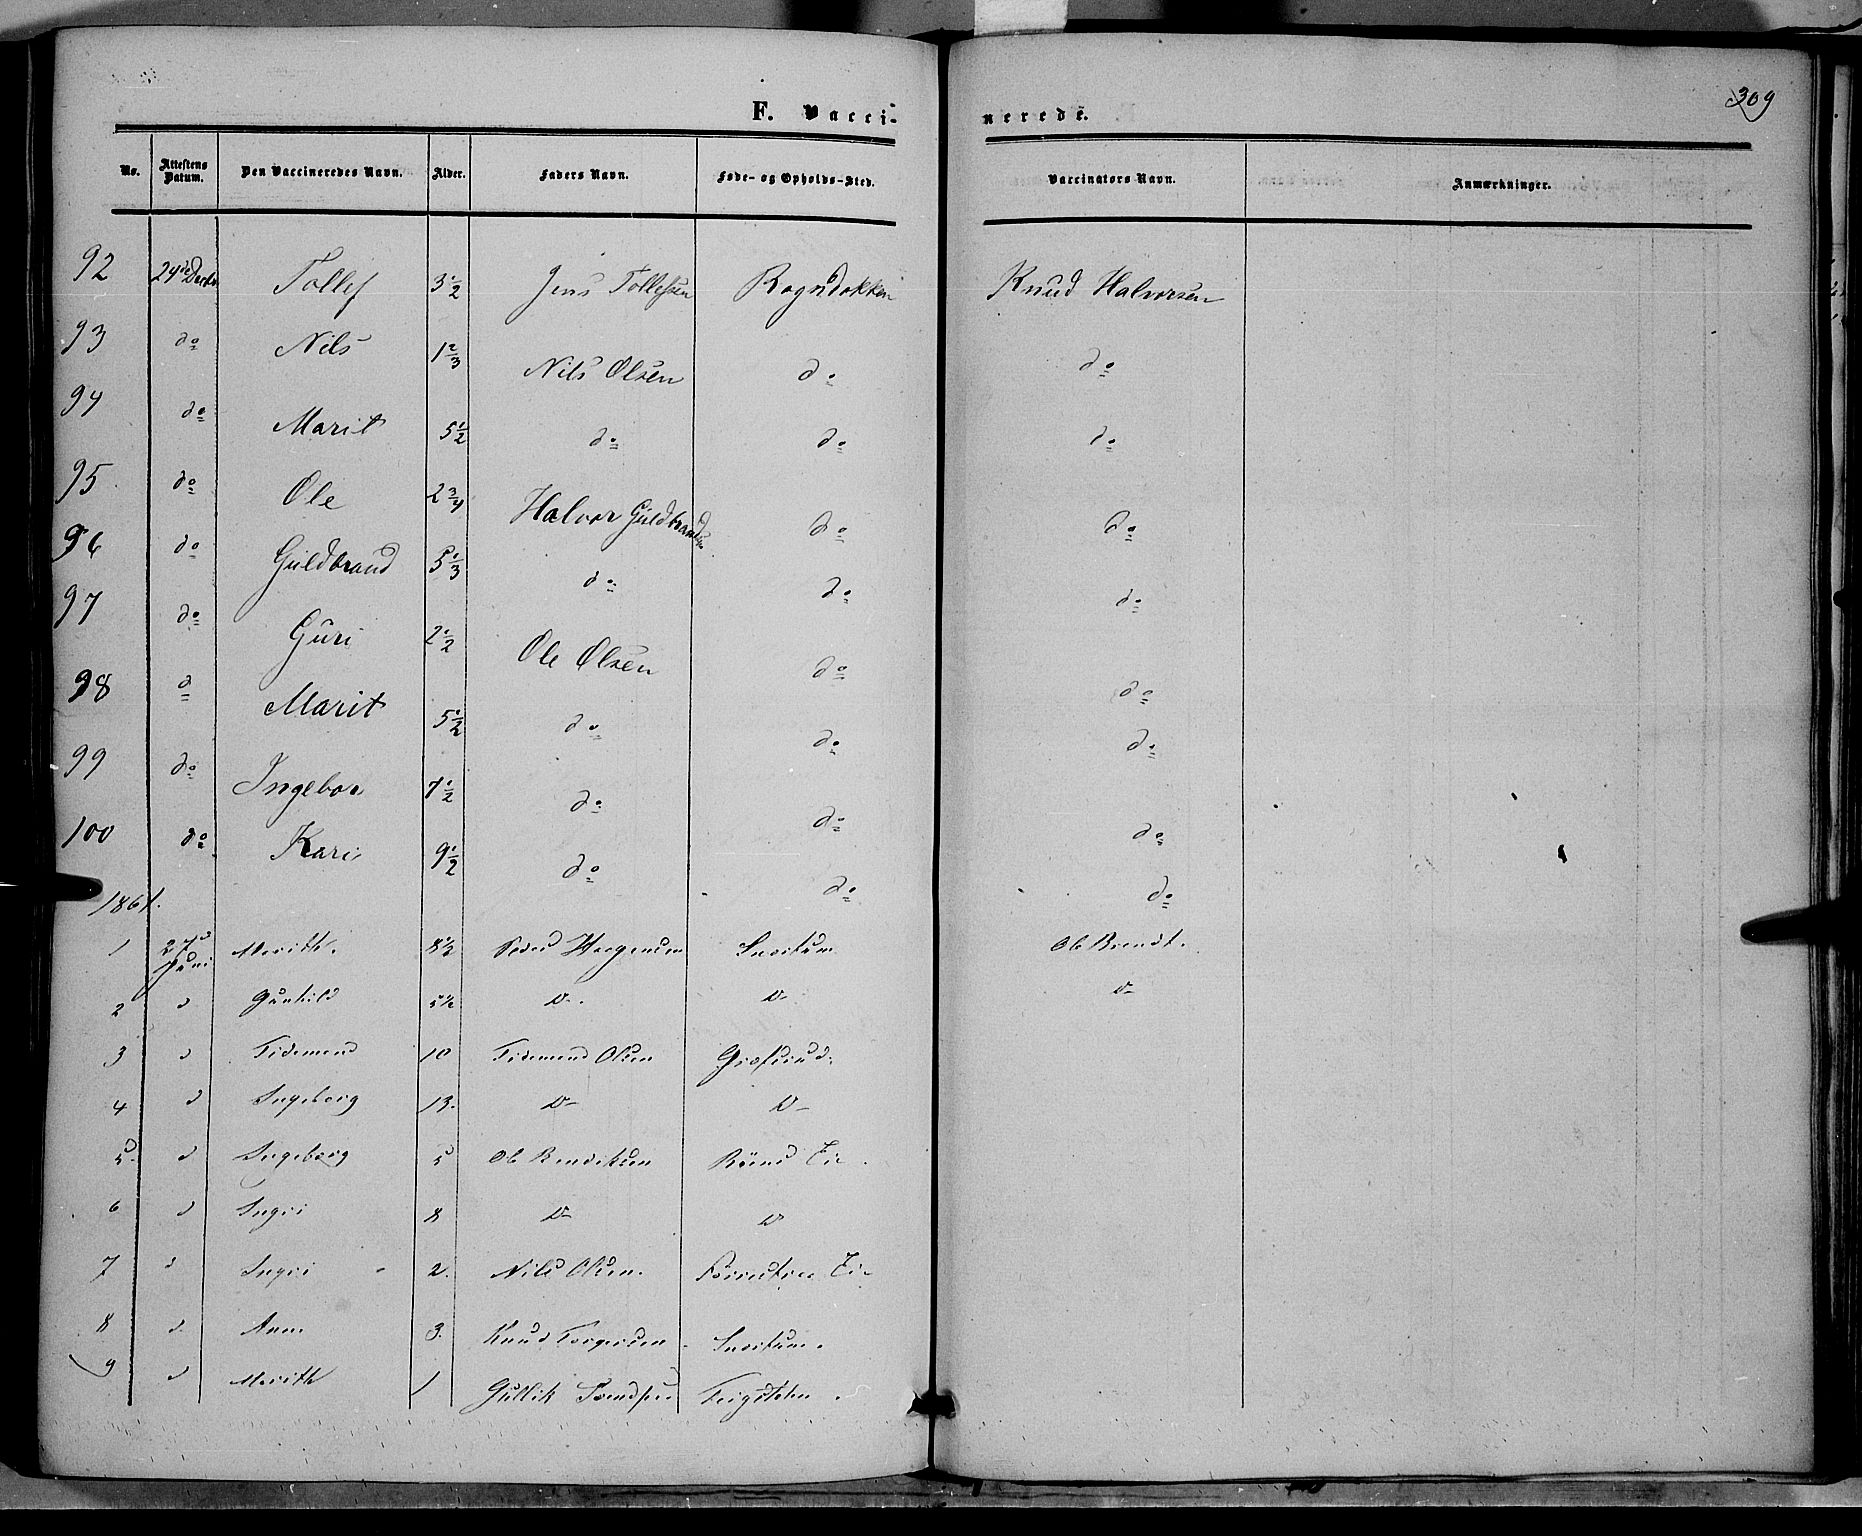 309
F. Vacci-nerede.
No. Attestens Datum. Den Vaccineredes Navn. Alder. Faders Navn. Føde- og Opholds-Sted. Vaccinators Navn. Anmærkninger.
92 24de Decbr Tollef 3 1/2 Jens Tollefsen Rogndokken Knud Halvorsen
93 do Nils 1 2/3 Nils Olsen do do
94 do Marit 5 1/2 do do do
95 do Ole 2 3/4 Halvor Guldbrandsen do do
96 do Guldbrand 5 1/3 do do do
97 do Guri 2 1/2 Ole Olsen do do
98 d Marit 5 1/2 do do do
99 do Ingebor 7 1/2 do do do
100 do Kari 9 1/2 do do do
1861.
1 27 Juni Marith. 8 1/2 Haagensen
2 d Gunhild 5 1/2 D- D- D-
3 d Tidemend 10 Tidemend Olsen
4 d Ingeborg 13. D- D-
5. d Ingeborg 5 Ole Bendiksen Eie.
6 d Ingri 8 D- D
7 d Ingri 2. Nils Olsen. Eie
8 d. Anne 3. Knud Torgersen.
9 d Marith 1 Gullik